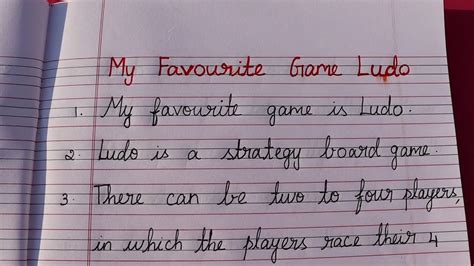 My Favourite Game Ludo
1. My favourite game is Ludo.
2. Ludo is a strategy board game.
3. There can be two to four players,
in which the players race their 4